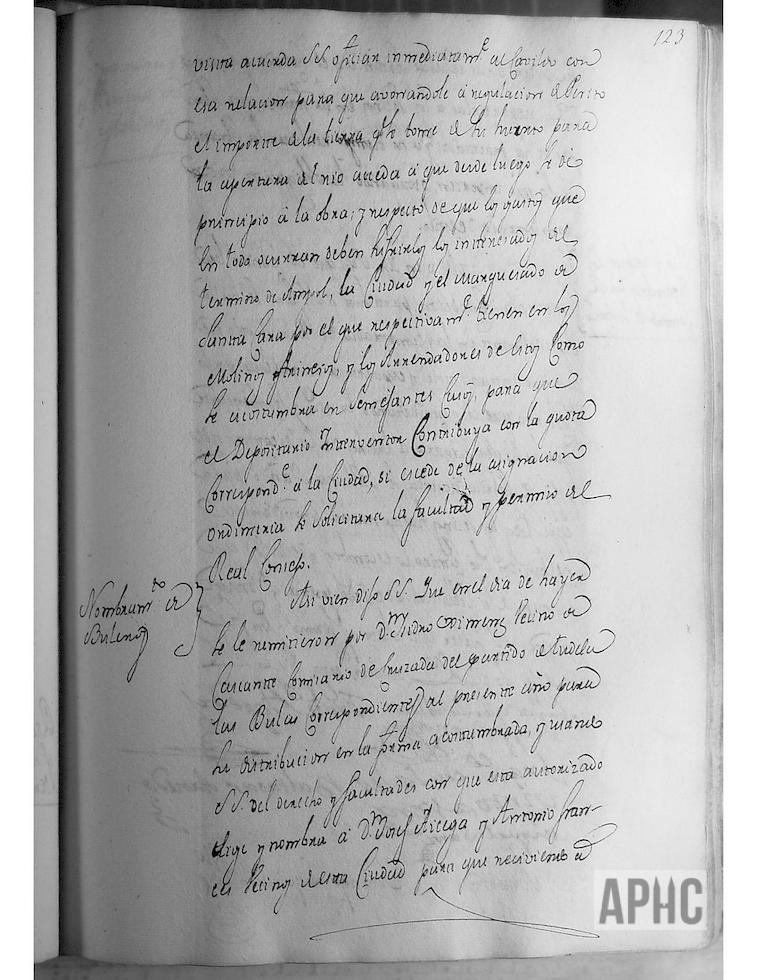 123
visita acuerda S.S. oficiar inmediatam.e al Cavildo con
esa relacion para que avonandole a regulacion de Perito
el importe de la tierra q.e se tome de su huerto para
la apertura del rio acceda a que desde luego se dé
principio á la obra; y respecto de que los gastos que
en todo ocurran deben sufrirlos los interesados del
termino de Ampol, la Ciudad y el Marquesado de
Santa Cara por el que respectivam.e tienen en los
Molinos Arineros, y los Arrendadores de estos como
se acostumbra en semejantes casos, para que
el Depositario Interventor Contribuya con la quota
Correspond.e a la Ciudad, si escede de la asignacion
ordinaria se solicitara la facultad y permiso del
Real Consejo.
Nombram.to de
Buleros
Asi vien dijo S.S. Que en el dia de hayer
se le remitieron por d.n Isidro Ximenez Vecino de
Cascante Comisario de Cruzada del partido de Tudela
las Bulas Correspondientes al presente año para
su distribucion en la forma acostumbrada, y usando
S.S. del derecho y facultades con que esta autorizado
elige y nombra á d.n Josef Aicega y Antonio Fran-
ces Vecinos de esta Ciudad para que reciviendo
APHC